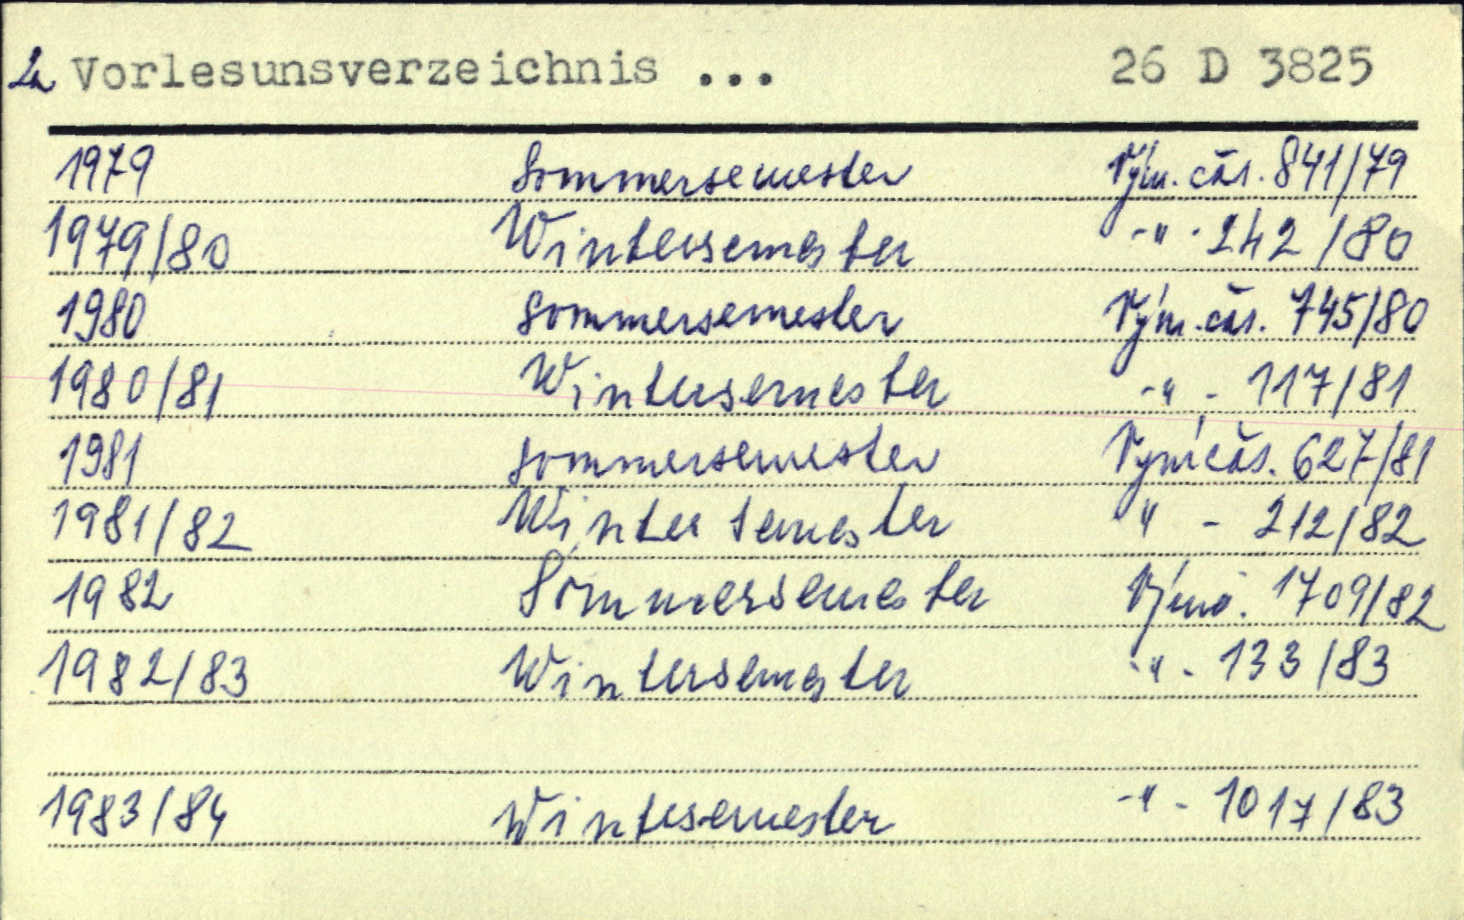 2a Vorlesunsverzeichnis ... 26 D 3825
1979 Sommersemester Vým. čas. 841/79
1979/80 Wintersemester -"- 242/80
1980 Sommersemester Vým. čas. 745/80
1980/81 Wintersemester -"- 117/81
1981 Sommersemester Vým čas. 627/81
1981/82 Wintersemester " - 212/82
1982 Sommersemester 1709/82
1982/83 Wintersemester -"- 133/83
1983/84 Wintesemester -"- 1017/83